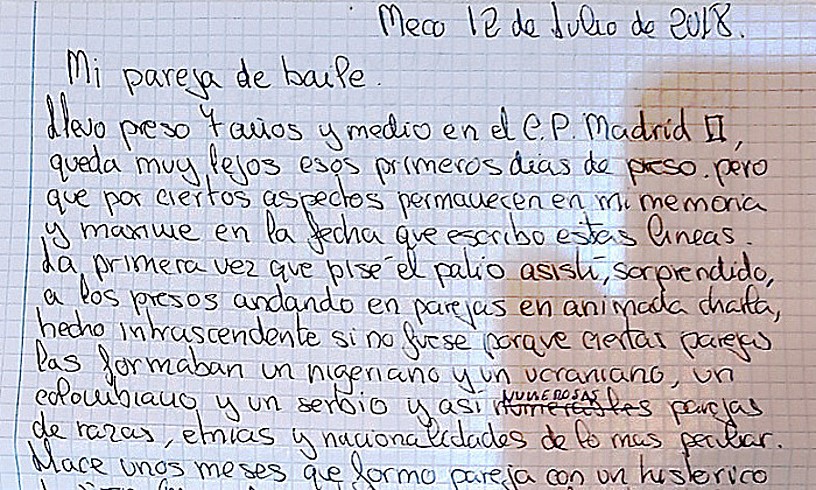 Meco 12 de Julio de 2018.
Mi pareja de baile.
Llevo preso 4 años y medio en el C.P. Madrid II,
queda muy lejos esos primeros dias de preso. pero
que por ciertos aspectos permanecen en mi memoria
y maxime en la fecha que escribo estas lineas.
La primera vez que pise el patio asistí, sorprendido,
a los presos andando en parejas en animada charla,
hecho intrascendente si no fuese porque ciertas parejas
las formaban un nigeriano y un ucraniano, un
colombiano y un serbio y así NUMEROSAS parejas
de razas, etnias y nacionalidades de lo mas peculiar.
Hace unos meses que formo pareja con un historico